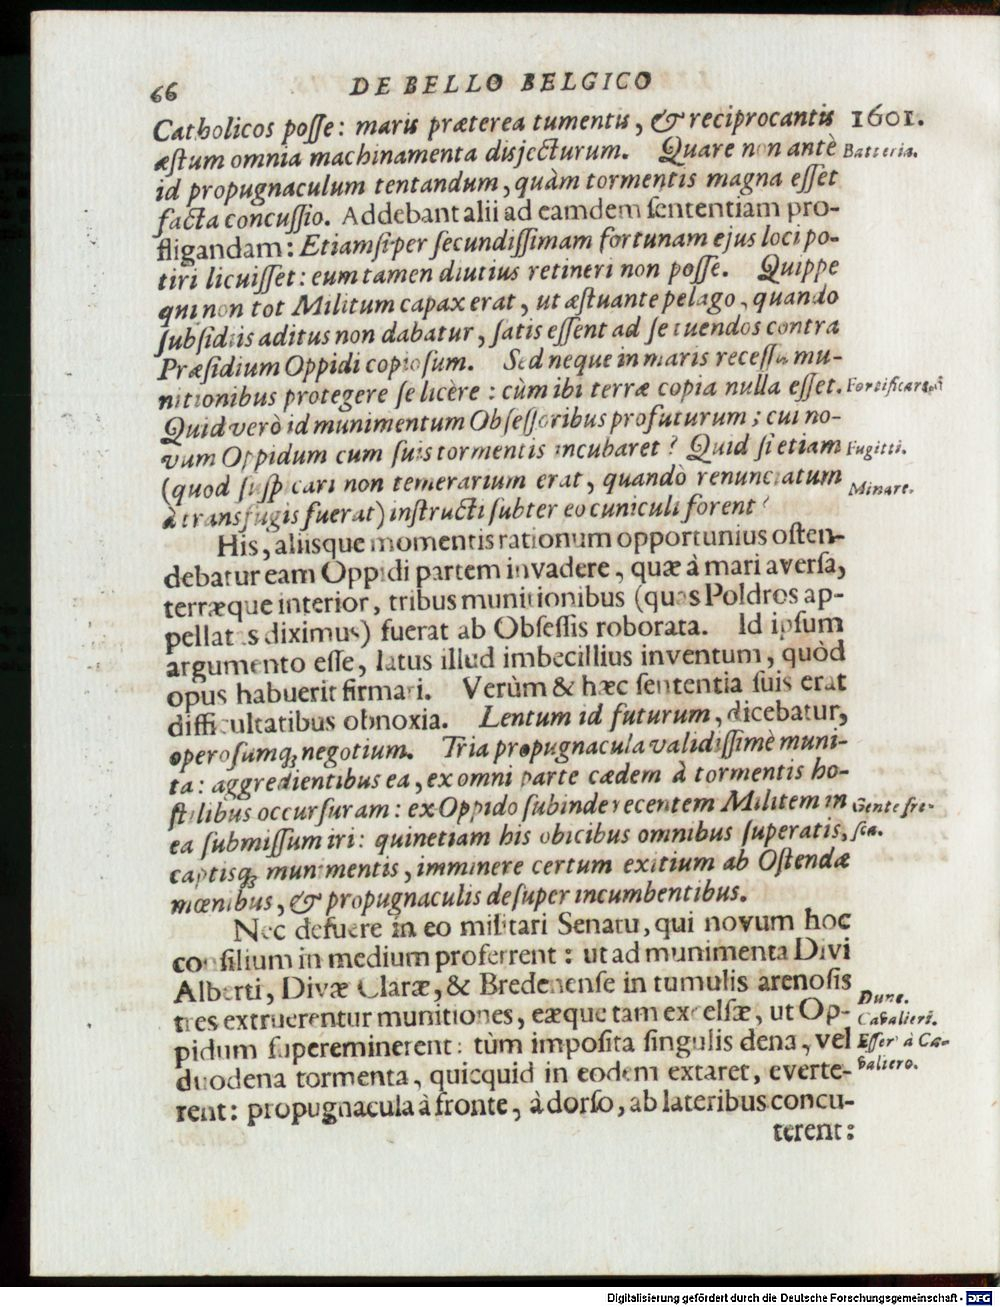 66 DE BELLO BELGICO
Catholicos poſſe: maris præterea tumentis, & reciprocantis 1601.
æſtum omnia machinamenta disjecturum. Quare non antè Batteria.
id propugnaculum tentandum, quàm tormentis magna eſſet
facta concuſſio. Addebant alii ad eamdem ſententiam pro-
fligandam: Etiamſi per ſecundiſſimam fortunam ejus loci po-
tiri licuiſſet: eum tamen diutius retineri non poſſe. Quippe
qui non tot Militum capax erat, ut æſtuante pelago, quando
ſubſidiis aditus non dabatur, ſatis eſſent ad ſe tuendos contra
Præſidium Oppidi copioſum. Sed neque in maris receſſu mu-
nitionibus protegere ſe licère: cùm ibi terræ copia nulla eſſet. Fortificarsi
Quid verò id munimentum Obſeſſoribus profuturum; cui no-
vum Oppidum cum ſuis tormentis incubaret? Quid ſi etiam Fugitti.
(quod ſuſpicari non temerarium erat, quandò renunciatum Minare.
à transfugis fuerat) inſtructi ſubter eo cuniculi forent?
His, aliisque momentis rationum opportunius oſten-
debatur eam Oppidi partem invadere, quæ à mari averſa,
terræque interior, tribus munitionibus (quas Poldros ap-
pellatas diximus) fuerat ab Obſeſſis roborata. Id ipſum
argumento eſſe, latus illud imbecillius inventum, quòd
opus habuerit firmari. Verùm & hæc ſententia ſuis erat
difficultatibus obnoxia. Lentum id futurum, dicebatur,
operoſumq; negotium. Tria propugnacula validiſſimè muni-
ta: aggredientibus ea, ex omni parte cædem à tormentis ho-
ſtilibus occurſuram: ex Oppido ſubinde recentem Militem in Gente fre-
ea ſubmiſſum iri: quinetiam his obicibus omnibus ſuperatis, ſca.
captisq; munimentis, imminere certum exitium ab Oſtendæ
mœnibus, & propugnaculis deſuper incumbentibus.
Nec defuere in eo militari Senatu, qui novum hoc
conſilium in medium proferrent: ut ad munimenta Divi
Alberti, Divæ Claræ, & Bredenenſe in tumulis arenoſis Dune.
tres extruerentur munitiones, eæque tam excelſæ, ut Op- Cavalieri.
pidum ſupereminerent: tùm impoſita ſingulis dena, vel Eſſer à Ca-
duodena tormenta, quicquid in eodem extaret, everte- valiero.
rent: propugnacula à fronte, à dorſo, ab lateribus concu-
terent:
Digitalisierung gefördert durch die Deutsche Forschungsgemeinschaft - DFG